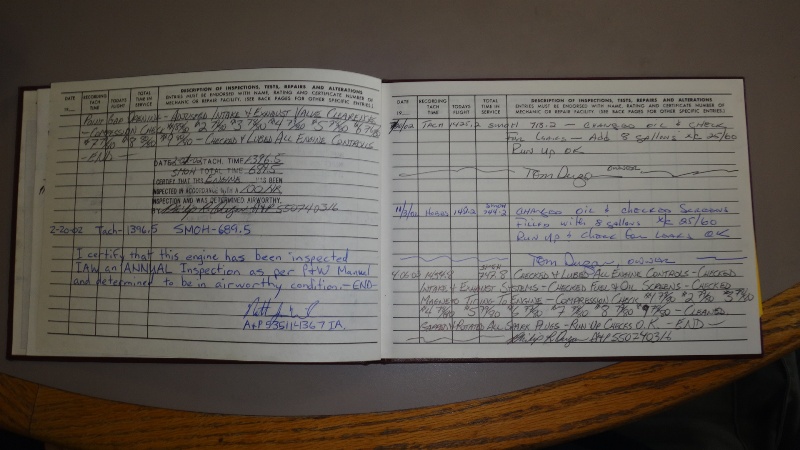 DATE
19
RECORDING TACH TIME
TODAYS FLIGHT
TOTAL TIME IN SERVICE
DESCRIPTION OF INSPECTIONS, TESTS, REPAIRS AND ALTERATIONS
ENTRIES MUST BE ENDORSED WITH NAME, RATING AND CERTIFICATE NUMBER OF
MECHANIC OR REPAIR FACILITY. (SEE BACK PAGES FOR OTHER SPECIFIC ENTRIES.)
INTAKE & EXHAUST VALVE CLEARANCES
- COMPRESSION CHECK
- CHECKED & LUBED ALL ENGINE CONTROLS
- END -
DATE TACH. TIME 1396.5
SMOH TOTAL TIME 689.5
I CERTIFY THAT THIS ENGINE HAS BEEN
INSPECTED IN ACCORDANCE WITH A 100 HR
INSPECTION AND WAS DETERMINED AIRWORTHY.
BY A&P 550740316
2-20-02 Tach- 1396.5 SMOH- 689.5
I certify that this engine has been inspected
IAW an ANNUAL Inspection as per P&W Manual
and determined to be in airworthy condition. -END-
A&P 535114367 IA.
DATE
19
RECORDING TACH TIME
TODAYS FLIGHT
TOTAL TIME IN SERVICE
DESCRIPTION OF INSPECTIONS, TESTS, REPAIRS AND ALTERATIONS
ENTRIES MUST BE ENDORSED WITH NAME, RATING AND CERTIFICATE NUMBER OF
MECHANIC OR REPAIR FACILITY. (SEE BACK PAGES FOR OTHER SPECIFIC ENTRIES.)
TACH 1425.2 SMOH 718.2 - CHANGED OIL & CHECK
FOR LEAKS - ADD 8 gallons XC 25/60
RUN UP OK
Tom Dugan OWNER
SMOH
CHANGED OIL & CHECKED SCREENS
FILLED WITH 8 gallons XC 25/60
RUN UP & CHECK FOR LEAKS OK
Tom Dugan, OWNER
SMOH
CHECKED & LUBED ALL ENGINE CONTROLS - CHECKED
INTAKE & EXHAUST SYSTEMS - CHECKED FUEL & OIL SCREENS - CHECKED
MAGNETO TIMING TO ENGINE - COMPRESSION CHECK
- CLEANED
GAPPED & ROTATED ALL SPARK PLUGS - RUN UP CHECKS O.K. - END -
A&P 550740316